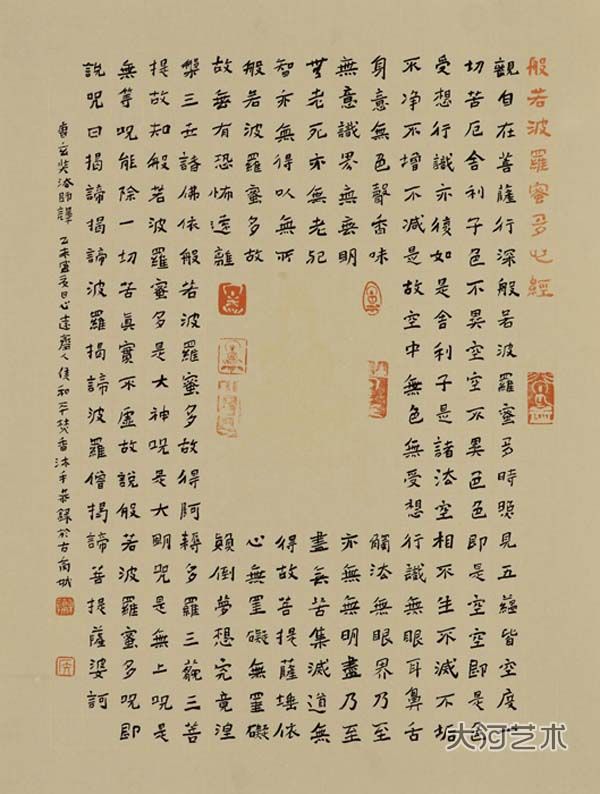 般若波羅蜜多心經
觀自在菩薩行深般若波羅蜜多時照見五蘊皆空度一
切苦厄舍利子色不異空空不異色色即是空空即是色
受想行識亦復如是舍利子是諸法空相不生不滅不垢
不净不增不減是故空中無色無受想行識無眼耳鼻舌
身意無色聲香味觸法無眼界乃至
無意識界無無明亦無無明盡乃至
無老死亦無老死盡無苦集滅道無
智亦無得以無所得故菩提薩埵依
般若波羅蜜多故心無罣礙無罣礙
故無有恐怖遠離顛倒夢想究竟涅
槃三世諸佛依般若波羅蜜多故得阿耨多羅三藐三菩
提故知般若波羅蜜多是大神咒是大明咒是無上咒是
無等咒能除一切苦真實不虛故說般若波羅蜜多咒即
說咒曰揭諦揭諦波羅揭諦波羅僧揭諦菩提薩婆訶
唐玄奘法師譯 乙未盛夏日心遠齋人侯和平焚香沐手恭録於古商城
大河艺术